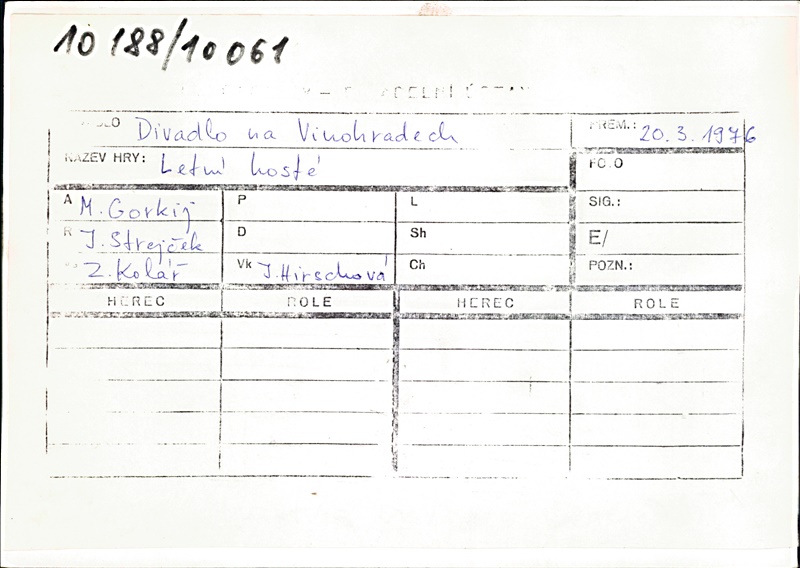 10 188/10 061
Divadlo na Vinohradech PREM.: 20.3.1976
NÁZEV HRY: Letní hosté
A M. Gorkij P L SIG.:
R J. Strejček D Sh E/
Z. Kolář Vk J. Hirschová Ch POZN.:
HEREC ROLE HEREC ROLE